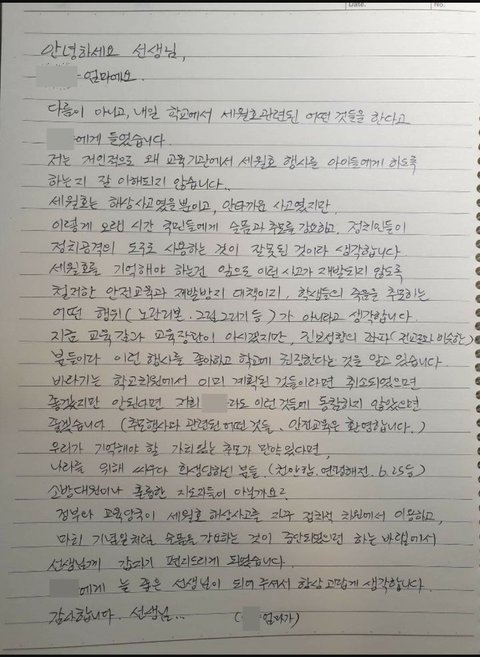 Date.
No.
안녕하세요 선생님,
엄마예요.
다름이 아니고, 내일 학교에서 세월호관련된 어떤 것들을 한다고
에게 들었습니다.
저는 개인적으로 왜 교육기관에서 세월호 행사를 아이들에게 하도록
하는지 잘 이해되지 않습니다.
세월호는 해상사고였을뿐이고, 안타까운 사고였지만,
이렇게 오랜 시간 국민들에게 슬픔과 추모를 강요하고, 정치인들이
정치공격의 도구로 사용하는 것이 잘못된 것이라 생각합니다
세월호를 기억해야 하는건 앞으로 이런 사고가 재발되지 않도록
철저한 안전교육과 재발방지 대책이지, 학생들의 죽음을 추모하는
어떤 행위 (노란리본, 그림그리기 등) 가 아니라고 생각합니다.
지금 교육감과 교육장관이 아시겠지만, 진보성향의 좌파(전교조와 비슷한)
분들이라 이런 행사를 좋아하고 학교에 권장한다는 것을 알고 있습니다.
바라기는 학교차원에서 이미 계획된 것들이라면 취소되었으면
좋겠지만 안된다면 저희 라도 이런 것들에 동참하지 않았으면
좋겠습니다 (추모행사와 관련된 어떤 것들. 안전교육은 환영합니다.)
우리가 기억해야 할 가치있는 추모가 만약 있다면,
나라를 위해 싸우다 희생당하신 분들 (천안함. 연평해전. 6.25등)
소방대원이나 훌륭한 지도자들이 아닐까요?
정부와 교육당국이 세월호 해상사고를 자꾸 정치적 차원에서 이용하고,
마치 기념일처럼 슬픔을 강요하는 것이 중단되었으면 하는 바램에서
선생님께 감히 편지드리게 되었습니다.
에게 늘 좋은 선생님이 되어 주셔서 항상 고맙게 생각합니다.
감사합니다. 선생님...
( 엄마가)